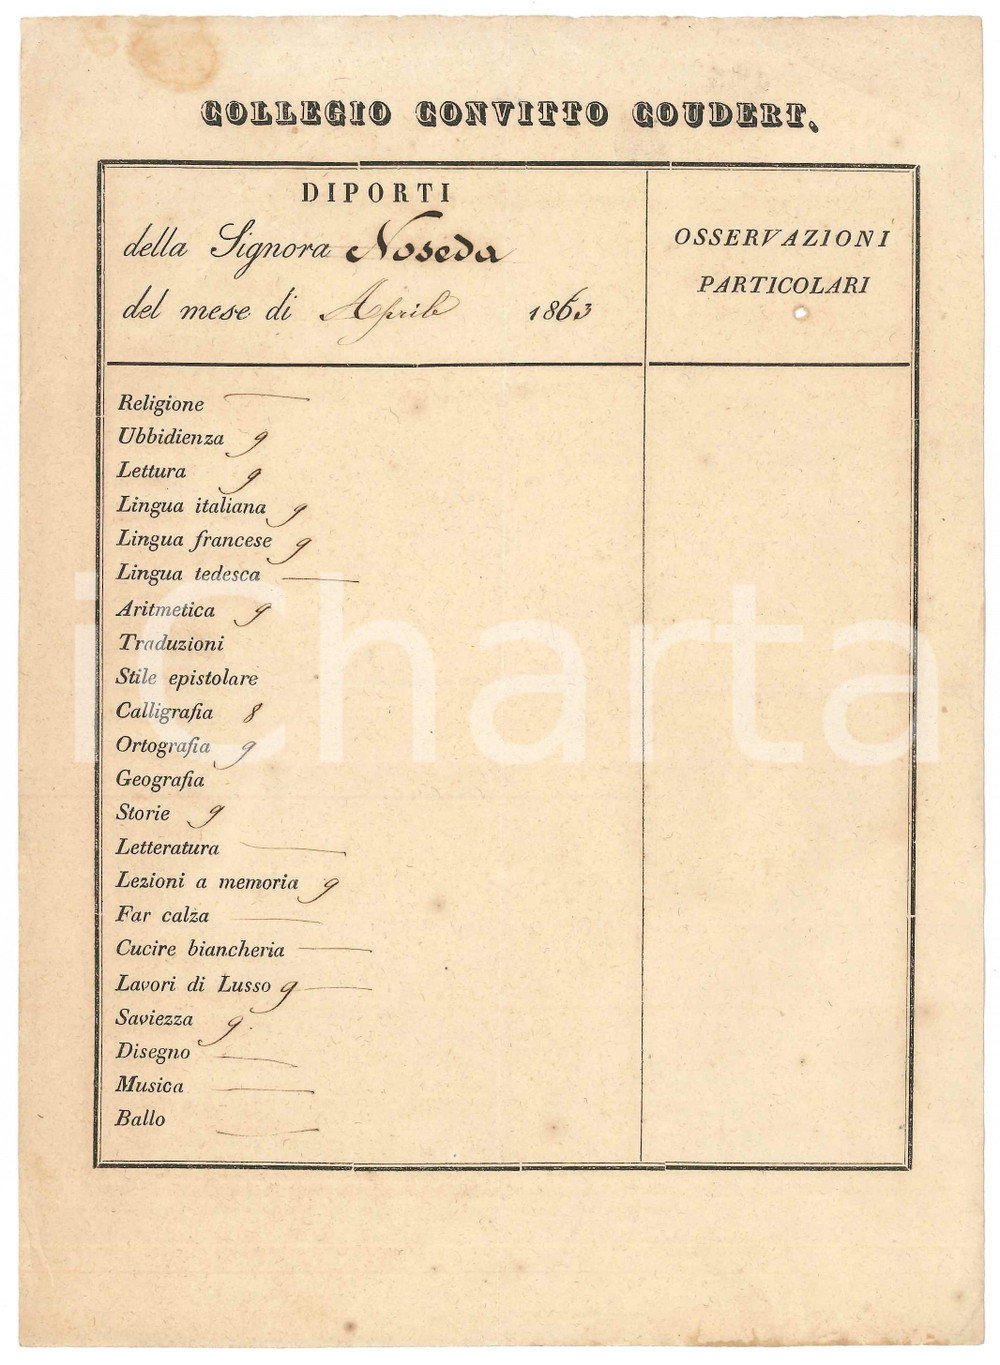 COLLEGIO CONVITTO COUDERT.
DIPORTI
della Signora Noseda
del mese di Aprile 1863
OSSERVAZIONI
PARTICOLARI
Religione —
Ubbidienza 9
Lettura 9
Lingua italiana 9
Lingua francese 9
Lingua tedesca —
Aritmetica 9
Traduzioni
Stile epistolare
Calligrafia 8
Ortografia 9
Geografia
Storie 9
Letteratura —
Lezioni a memoria 9
Far calza —
Cucire biancheria —
Lavori di Lusso 9 —
Saviezza 9.
Disegno —
Musica —
Ballo —
iCharta